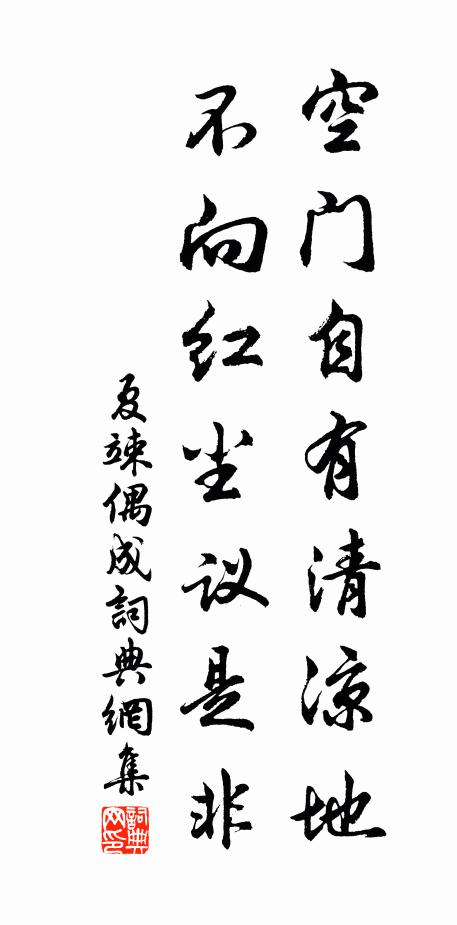 空门自有清凉地
不向红尘议是非
夏竦偶成詞典網集
詞典网印